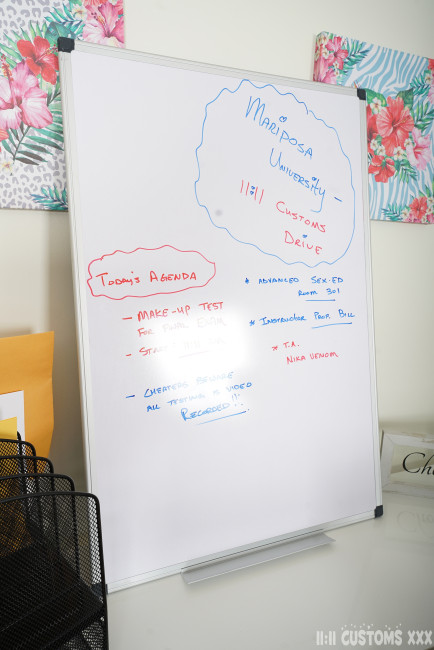 MARIPOSA
UNIVERSITY -
11:11 CUSTOMS
DRIVE
TODAY'S AGENDA
- MAKE-UP TEST
FOR FINAL EXAM
- CHEATERS BEWARE
ALL TESTING IS VIDEO
RECORDED!!
* ADVANCED SEX-ED
ROOM 301
* INSTRUCTOR PROF. BILL
* T.A.
NIKA VENOM
Ch
11:11 CUSTOMS XXX